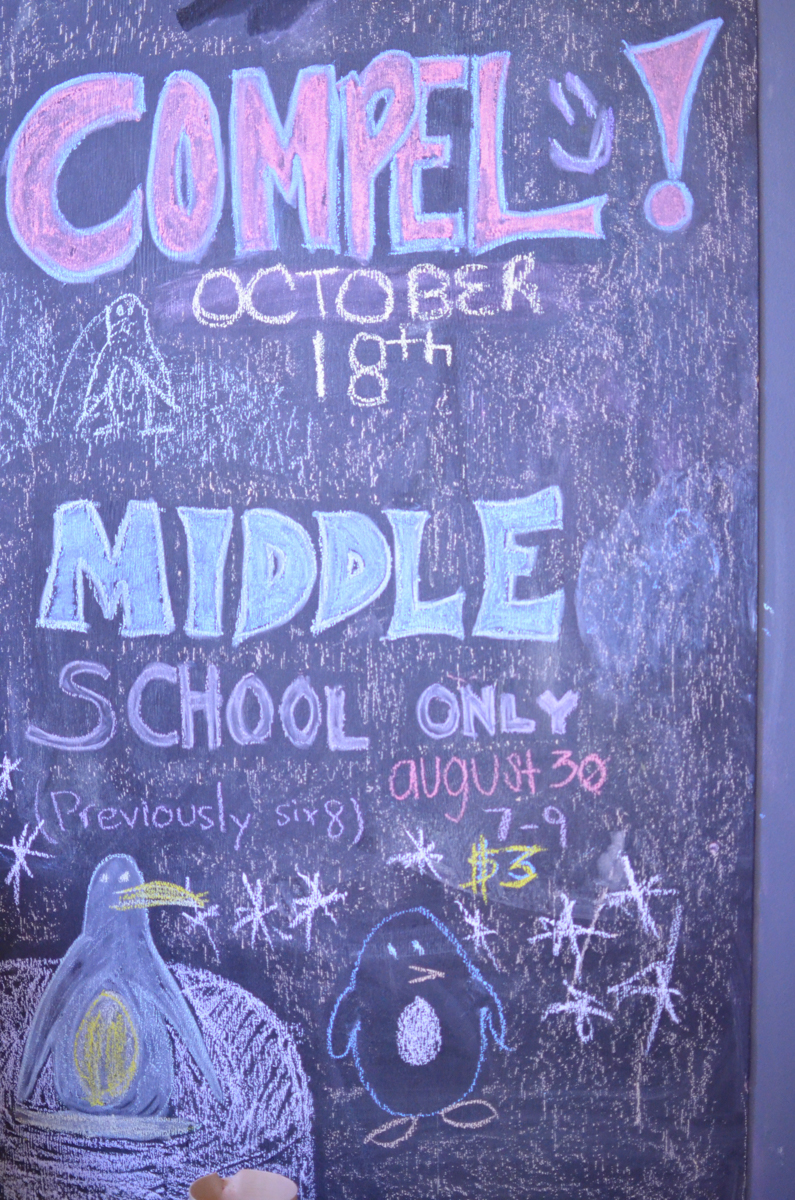 COMPEL!
OCTOBER
18th
MIDDLE
SCHOOL ONLY
august 30
(Previously six8)
7-9
$3